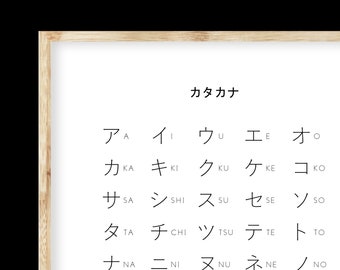 カタカナ
ア A イ I ウ U エ E オ O
カ KA キ KI ク KU ケ KE コ KO
サ SA シ SHI ス SU セ SE ソ SO
タ TA チ CHI ツ TSU テ TE ト TO
ナ NA ニ NI ヌ NU ネ NE ノ NO